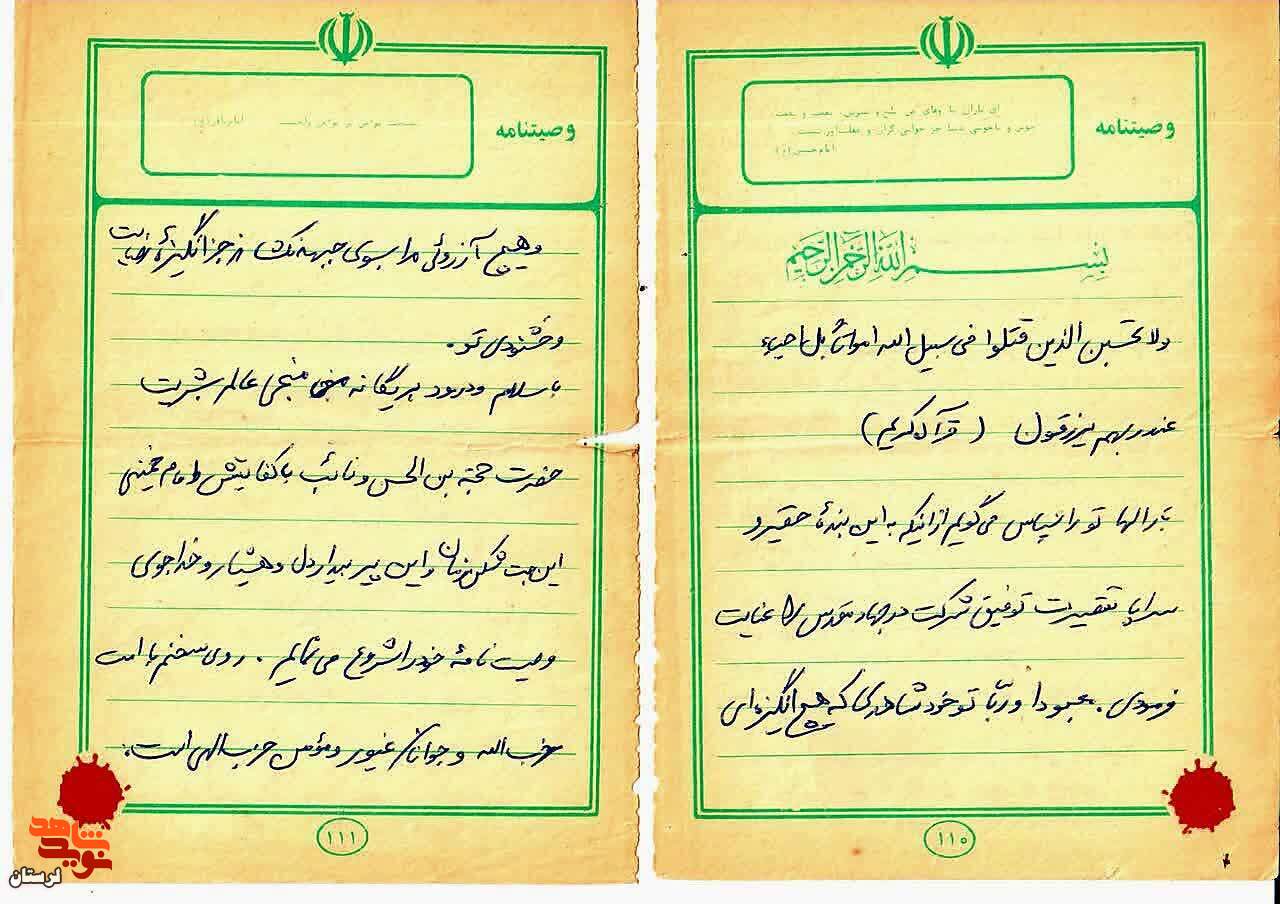 وصیتنامه
ای یاران با وفای من
امام حسین (ع)
بسم الله الرحمن الرحیم
ولا تحسبن الذین قتلوا فی سبیل الله امواتاً بل احیاء
عند ربهم یرزقون (قرآن کریم)
بارالها تو را سپاس می‌گویم از اینکه به این بندهٔ حقیر و
سراپا تقصیرت توفیق شرکت در جهاد مقدس را عنایت
فرمودی. معبودا و ربّا تو خود شاهدی که هیچ انگیزه‌ای
۱۱۰
وصیتنامه
و هیچ آرزوئی مرا بسوی جبهه نکشاند جز انگیزهٔ رضایت
و خشنودی تو.
با سلام و درود به یگانه منجی عالم بشریت
حضرت حجة بن الحسن و نائب با کفایتش امام خمینی
این بت شکن زمان و این پیر بیدار دل و هشیار و خداجوی
وصیت نامهٔ خود را شروع می نمایم. روی سخنم با امت
حزب الله و جوانان غیور و مؤمن حزب الهی است.
۱۱۱
نوید شاهد
لرستان